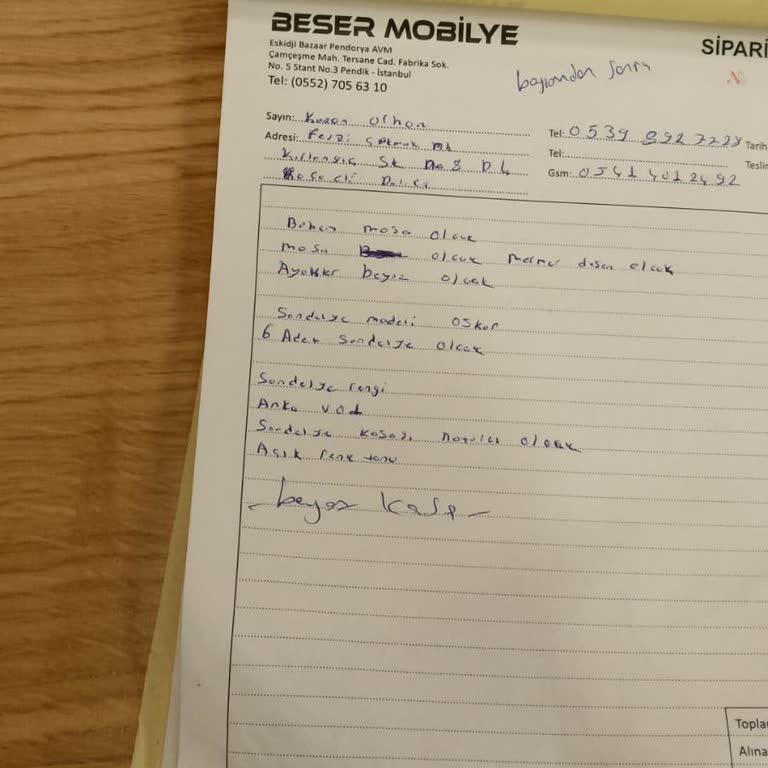 BESER MOBİLYE
Eskidji Bazaar Pendorya AVM
Çamçeşme Mah. Tersane Cad. Fabrika Sok.
No. 5 Stant No.3 Pendik - İstanbul
Tel: (0552) 705 63 10
SİPARİ
bayramdan sonra
No
Sayın: Kenan Orhan
Adresi: Fevzi Çakmak Mh
Sk No 8 D 4
Tel: 0539 892 7228
Tarih
Tel:
Teslim
Gsm: 0541 401 2492
masa olcak
masa olcak mermer desen olcak
Ayaklar beyaz olcak
Sandalye modeli oskar
6 Adet Sandalye olcak
Sandalye rengi
Anka V01
Sandalye kasası naturel olcak
Açık renk tonu
- beyaz kasa -
Topla
Alına